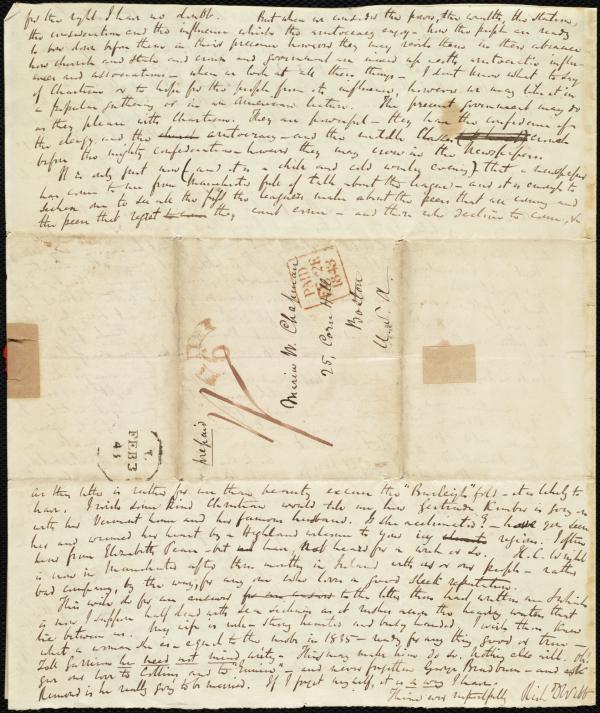 for the right. I have no doubt. But when we consider the power, the wealth, the station,
the consideration and the influence which the autocracy enjoy - how the people are ready
to bow down before them in their presence however they may revile them in their absence
how church and state and crown and government are mixed up with aristocratic influ-
ences and associations - when we look at all these things - I don't know what to say
of Chartism or to hope for the people from its influence, however we may like it in
a popular gathering or in an American lecture. The present government may do
as they please with Chartism. They are powerful - they have the confidence of
the clergy and the aristocracy - and the middle Classes crouch
before this mighty confederation - however they may crow in the newspapers.
It is only just now (and it is a chill and cold windy evening) that a newspaper
has come to me from Manchester full of talk about the league - and it is enough to
sicken one to see all the fuss the leaguers make about the peers that are coming and
the peers that regret they cant come - and those who decline to come, &
PAID
FE 28
1843
Maria W. Chapman
25, Corn Hill
Boston
U.S.A.
prepaid
FEB 3
43
as this letter is rather for me than penalty excuse the "Burleigh" fold - it is likely to
have. I wish some kind Christian would tell me how Gertrude Kimber is going on
with her Vermont home and his famous husband. Is she acclimated? - have you seen
her and warmed her heart by a Highland welcome to your icy regions. I often
hear from Elizabeth Pease - but not here, heard for a week or so. H. C. Wright
is now in Manchester after three months in Ireland with us or our people - rather
bad company, by the way, for any one who loves a good sleek reputation.
This will do for an answer to the letter thou hast written me & which
is now, I suppose half dead with sea sickness as it rushes across the heaving waters that
lie between us. My wife is well - strong hearted and busy handed. I wish thou knew
what a woman she is - equal to the mobs in 1835 - ready for any thing good or true -
Tell Garrison he need not mind writing. This may make him do so. Nothing else will. Oh!
give our love to Collins and to "Eunice" - and never forgetting George Bradburn - and
Remond is he really going to be married. If I forget myself, it is a way I have.
Thine very respectfully Rich D Webb